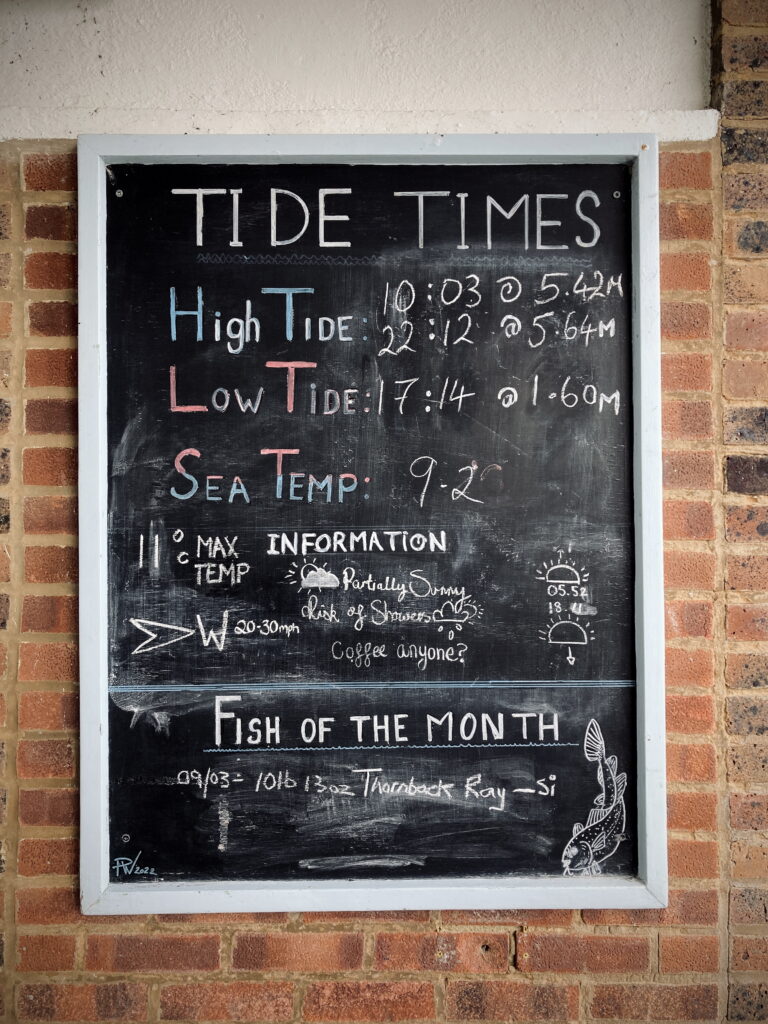 TIDE TIMES
High TIDE: 10:03 @ 5.42M
22:12 @ 5.64M
LOW TIDE: 17:14 @ 1.60M
SEA TEMP: 9.2°
11°C MAX TEMP
INFORMATION
Partially Sunny
Risk of Showers
Coffee anyone?
W 20-30mph
05.52
18.11
FISH OF THE MONTH
09/03 = 10lb 13oz Thornback Ray - Si
PW 2022